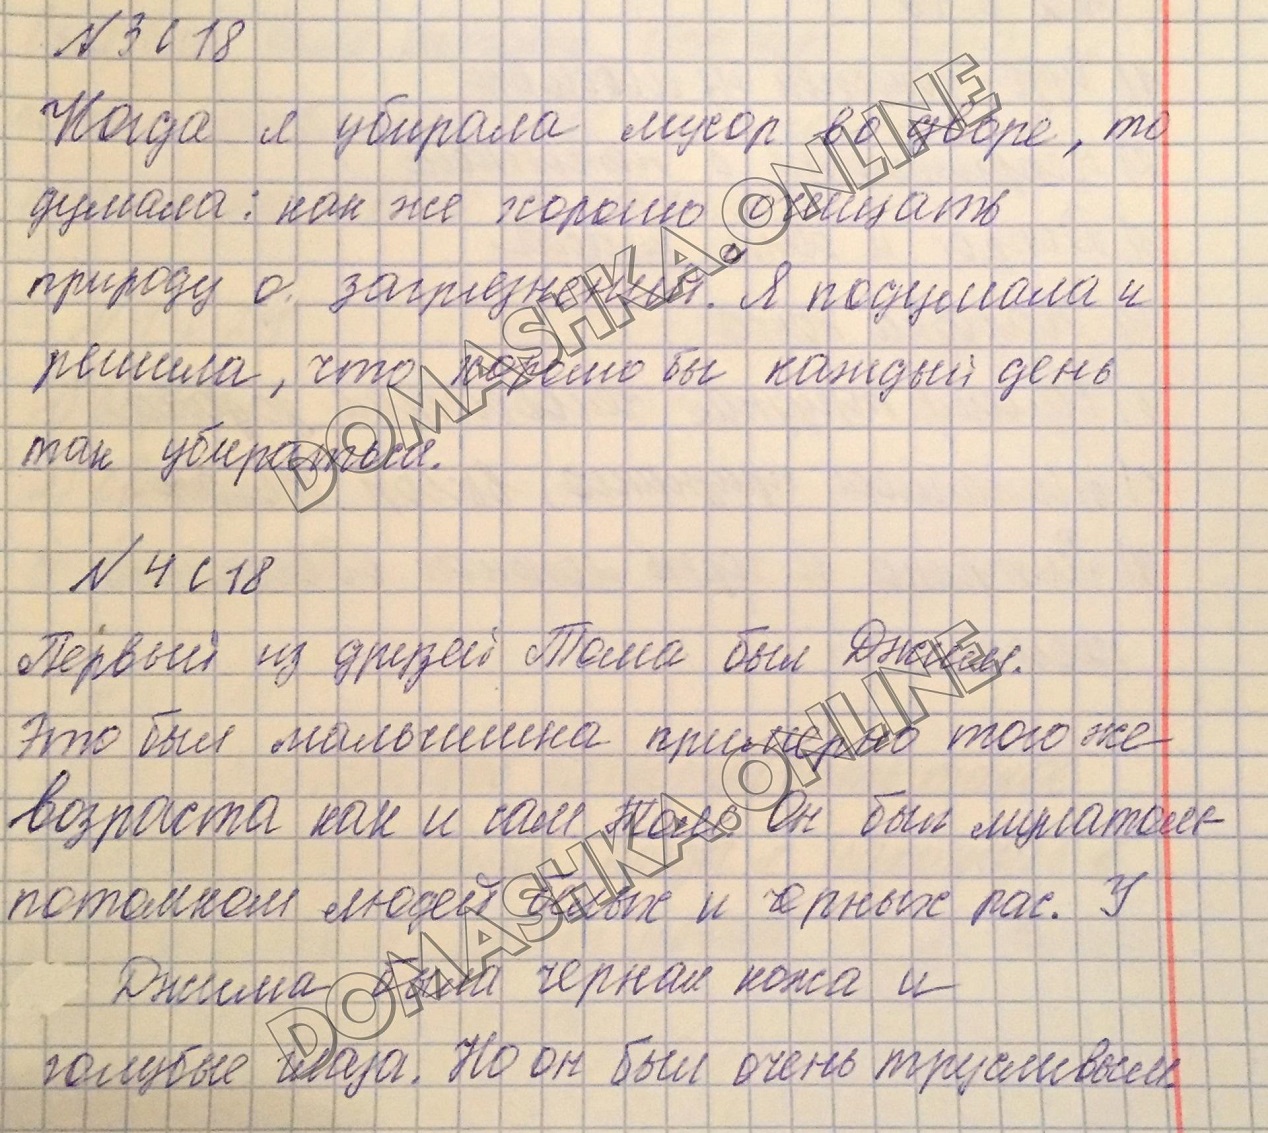 N 3 с 18
Когда я убирала мусор во дворе, то
думала: как же хорошо очищать
природу о. загрезнений. Я подумала и
решила, что хорошо бы каждый день
так убираться.
N 4 с 18
Первый из друзей Тома был Джим.
Это был мальчишка примерно того же
возраста как и сам Том. Он был мулатом-
потомком людей белых и черных рас. У
Джима была черная кожа и
голубые глаза. Но он был очень трусливым
DOMASHKA.ONLINE
DOMASHKA.ONLINE